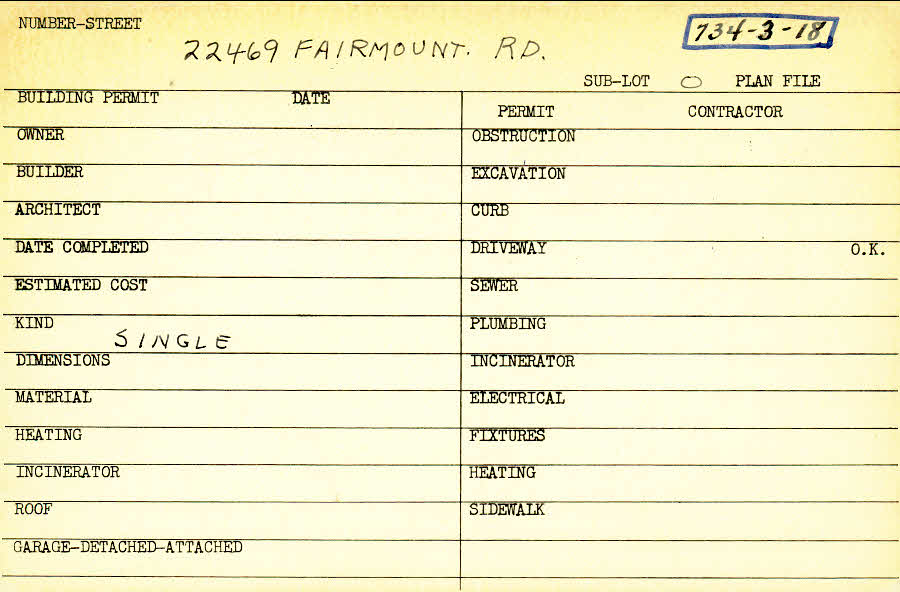 NUMBER-STREET
22469 FAIRMOUNT. RD.
734-3-18
SUB-LOT O PLAN FILE
BUILDING PERMIT DATE
OWNER
BUILDER
ARCHITECT
DATE COMPLETED
ESTIMATED COST
KIND
SINGLE
DIMENSIONS
MATERIAL
HEATING
INCINERATOR
ROOF
GARAGE-DETACHED-ATTACHED
PERMIT CONTRACTOR
OBSTRUCTION
EXCAVATION
CURB
DRIVEWAY O.K.
SEWER
PLUMBING
INCINERATOR
ELECTRICAL
FIXTURES
HEATING
SIDEWALK